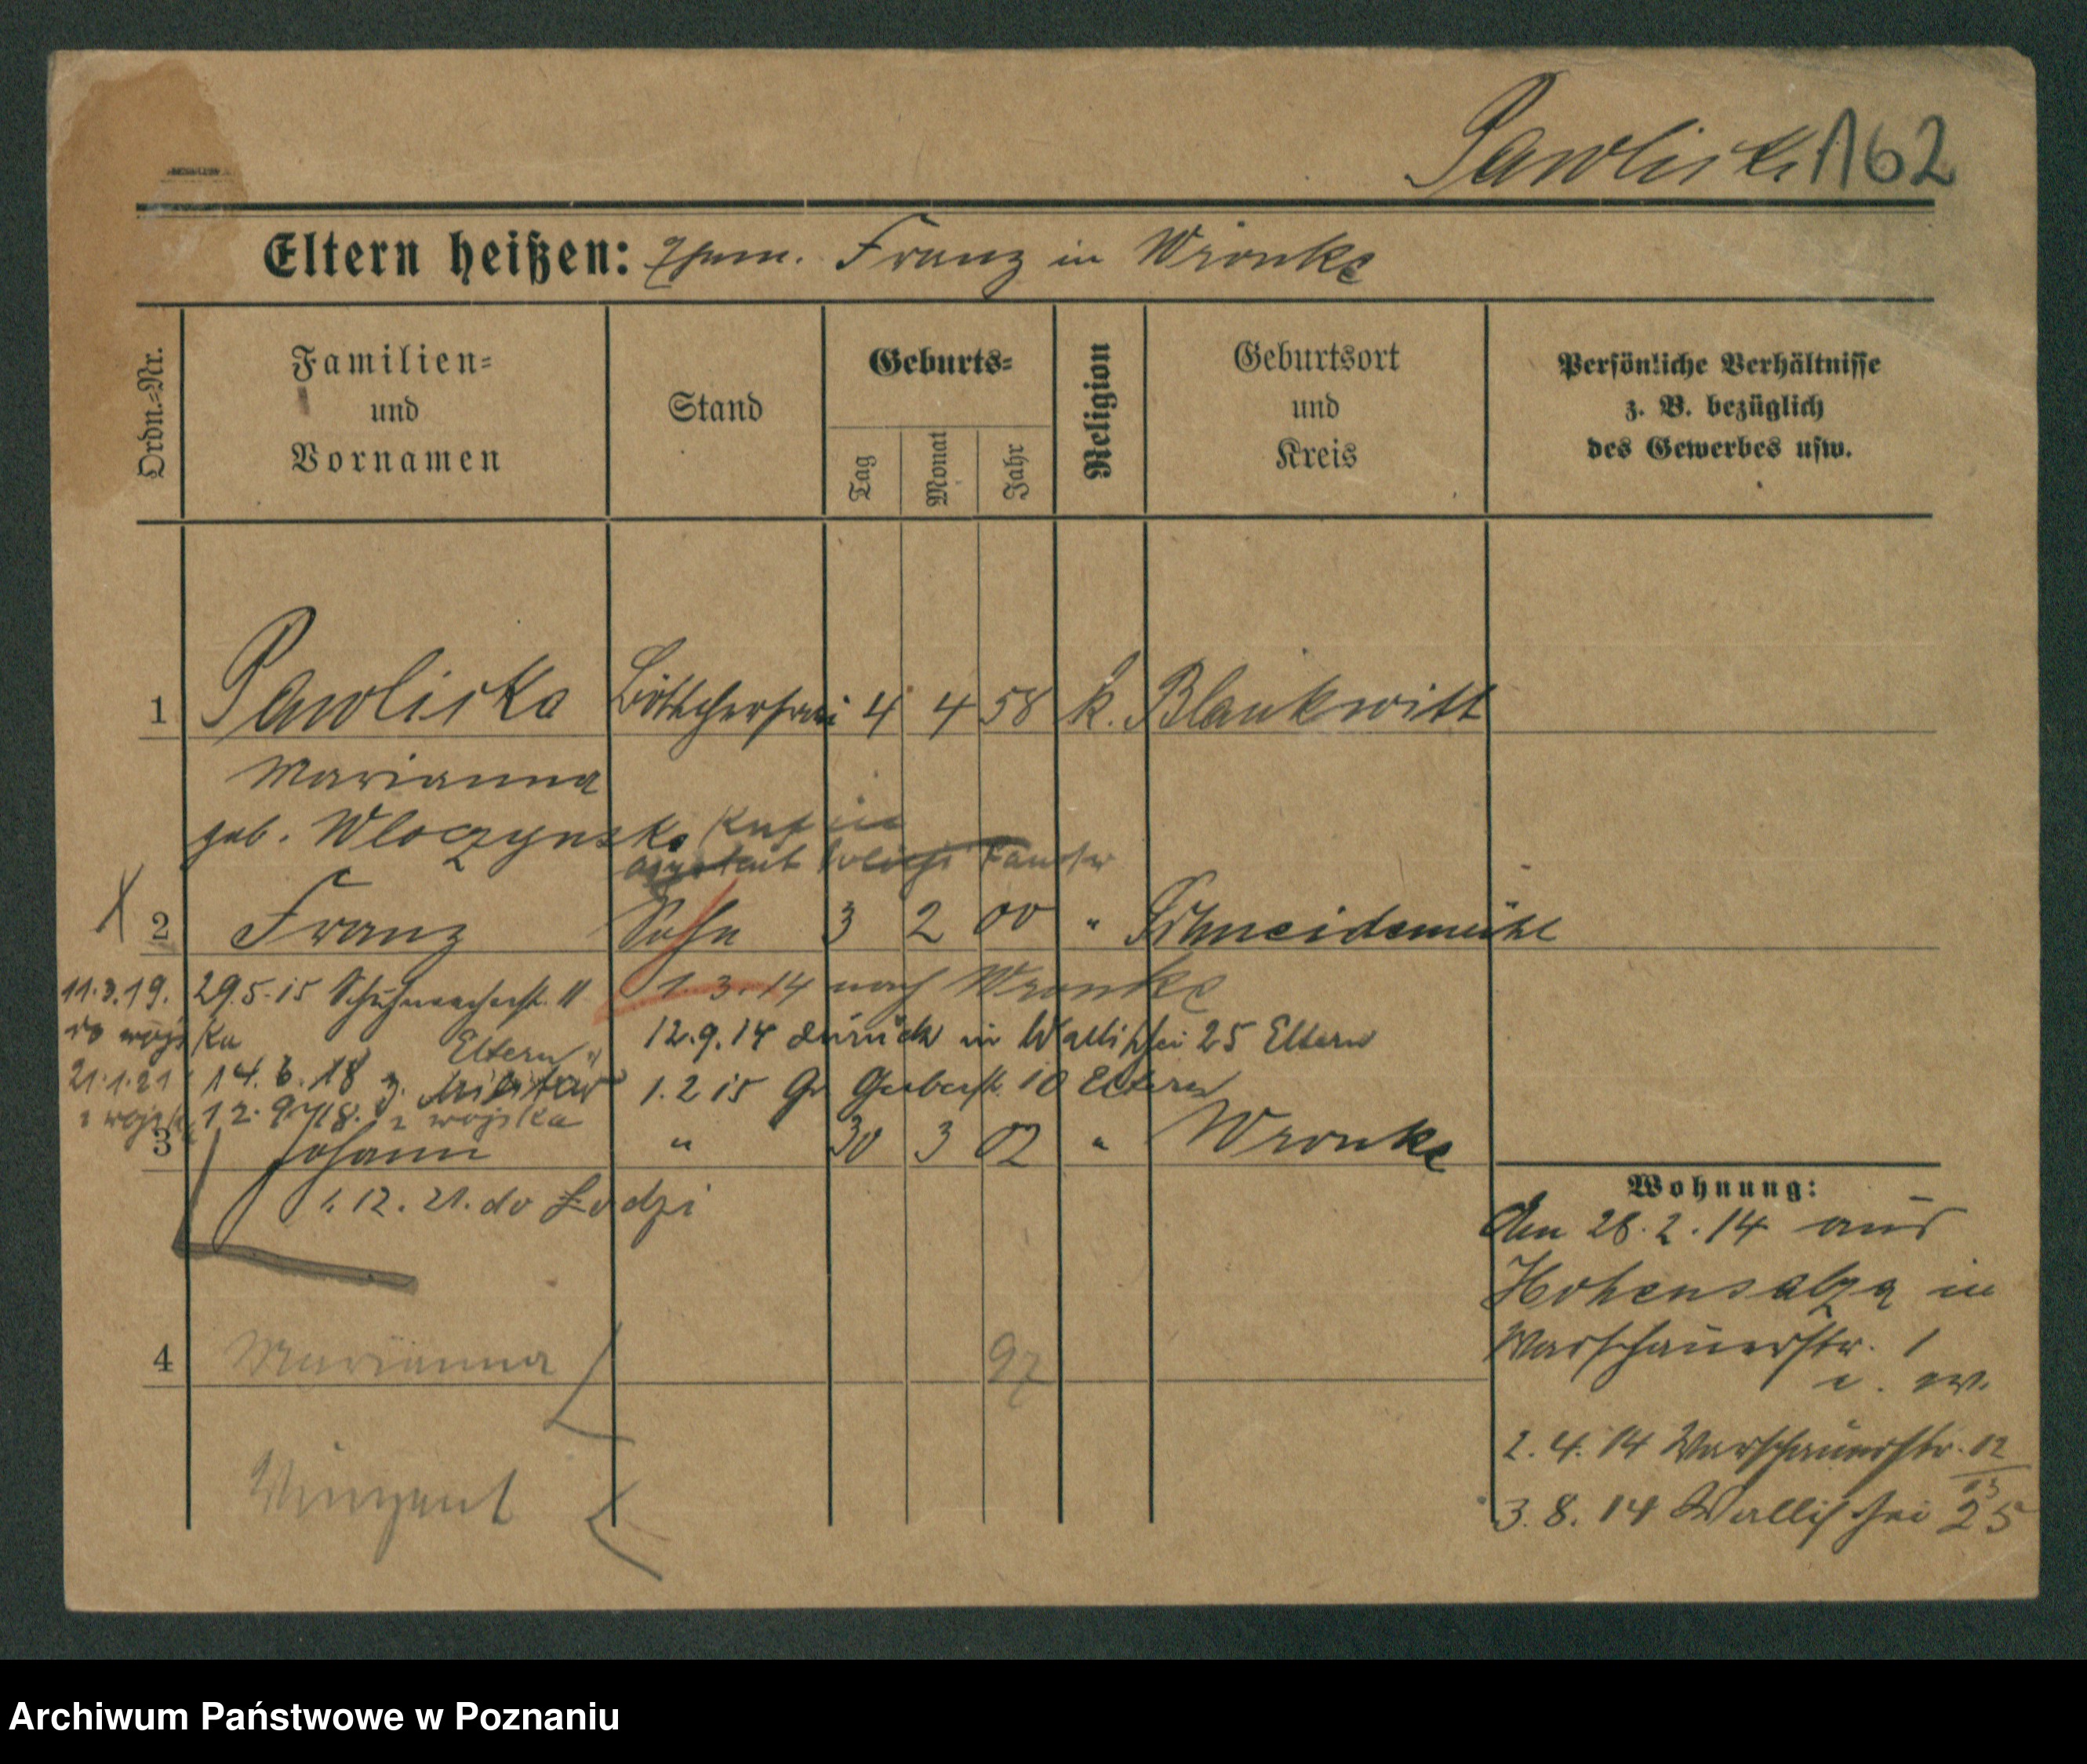 Pawliska 162
Eltern heißen: Ehem. Franz in Wronke
Ordn.=Nr.
Familien=
und
Vornamen
Stand
Geburts=
Tag
Monat
Jahr
Religion
Geburtsort
und
Kreis
Persönliche Verhältnisse
z. B. bezüglich
des Gewerbes usw.
1 Pawliska Böttcherfrau 4 4 58 k. Blankwitt
Marianna
geb. Wloczynska
2 Franz Sohn 3 2 00 " Schneidemühl
11.3.19. 29.5.15 Schuhmacherstr. 11 1.3.14 nach Wronke
do wojska Eltern 12.9.14 zurück in Wallischei 25 Eltern
21.1.21 14.6.18 z. Militär 1.2.15 Gr. Gerberstr. 10 Eltern
z wojska 12.9.18. z wojska
3 Johann " 30 3 02 " Wronke
1.12.21. do Łodzi
4 Marianna 97
Vinzent
Wohnung:
Den 28.2.14 aus
Hohensalza in
Warschauerstr. 1
2.4.14 Warschauerstr. 12
3.8.14 Wallischei 25
Archiwum Państwowe w Poznaniu